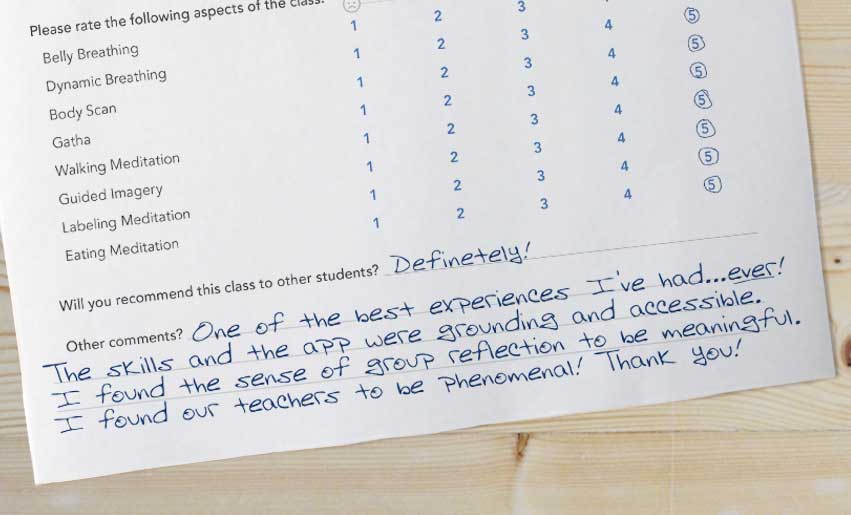 Please rate the following aspects of the class:
Belly Breathing 1 2 3 4 5
Dynamic Breathing 1 2 3 4 5
Body Scan 1 2 3 4 5
Gatha 1 2 3 4 5
Walking Meditation 1 2 3 4 5
Guided Imagery 1 2 3 4 5
Labeling Meditation 1 2 3 4 5
Eating Meditation 1 2 3 4
Will you recommend this class to other students? Definetely!
Other comments? One of the best experiences I've had...ever!
The skills and the app were grounding and accessible.
I found the sense of group reflection to be meaningful.
I found our teachers to be phenomenal! Thank you!